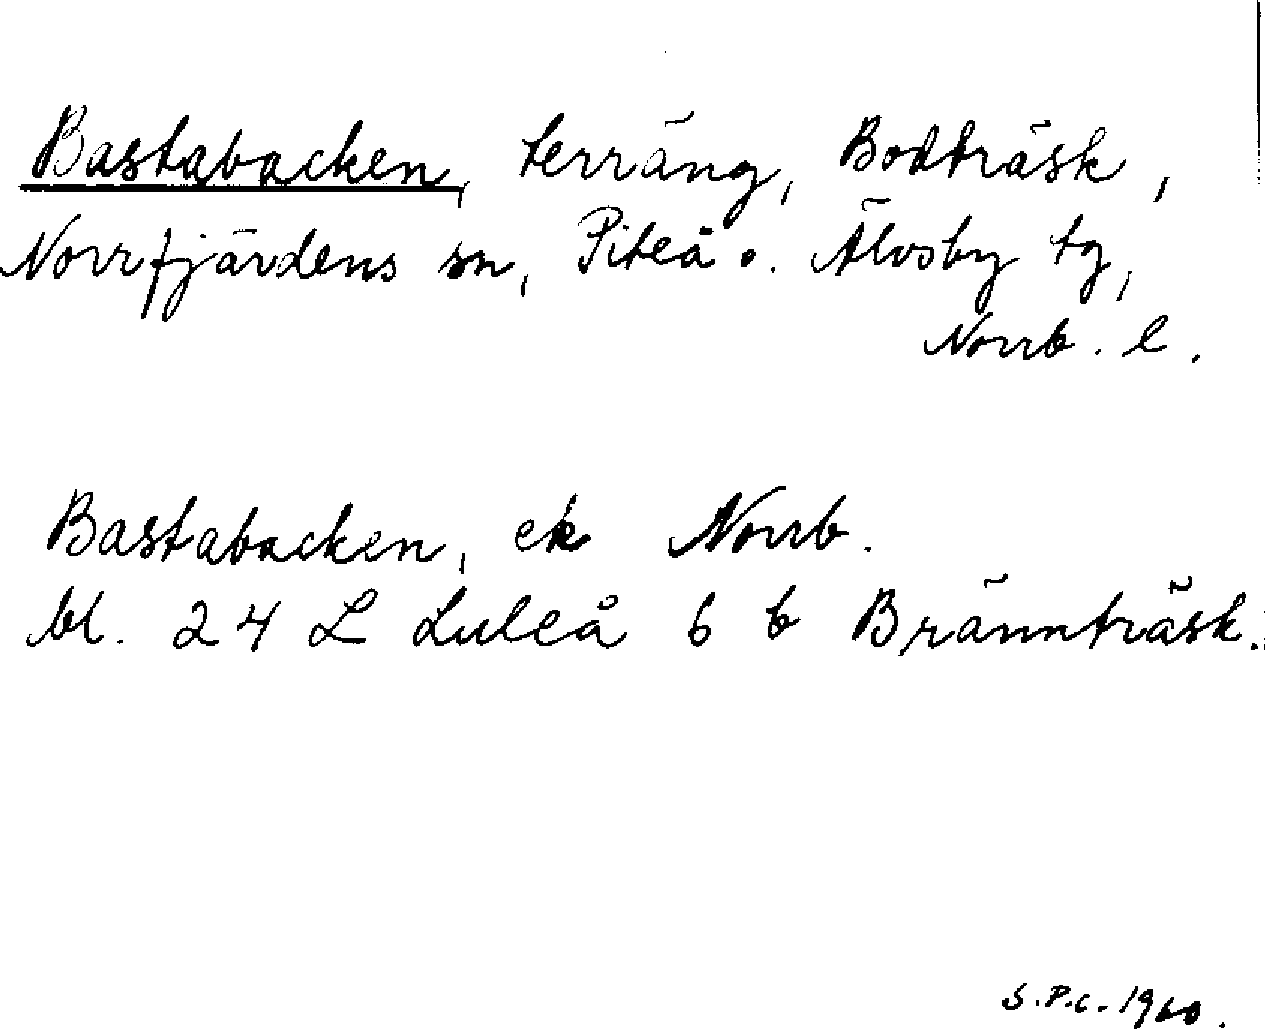 Bastabacken, terräng, Bodträsk,
Norrfjärdens sn, Piteå o. Älvsby tg,
Norrb. l.
Bastabacken, ek Norrb.
bl. 24 L Luleå 6 b Brännträsk.
S.P.C. 1960.